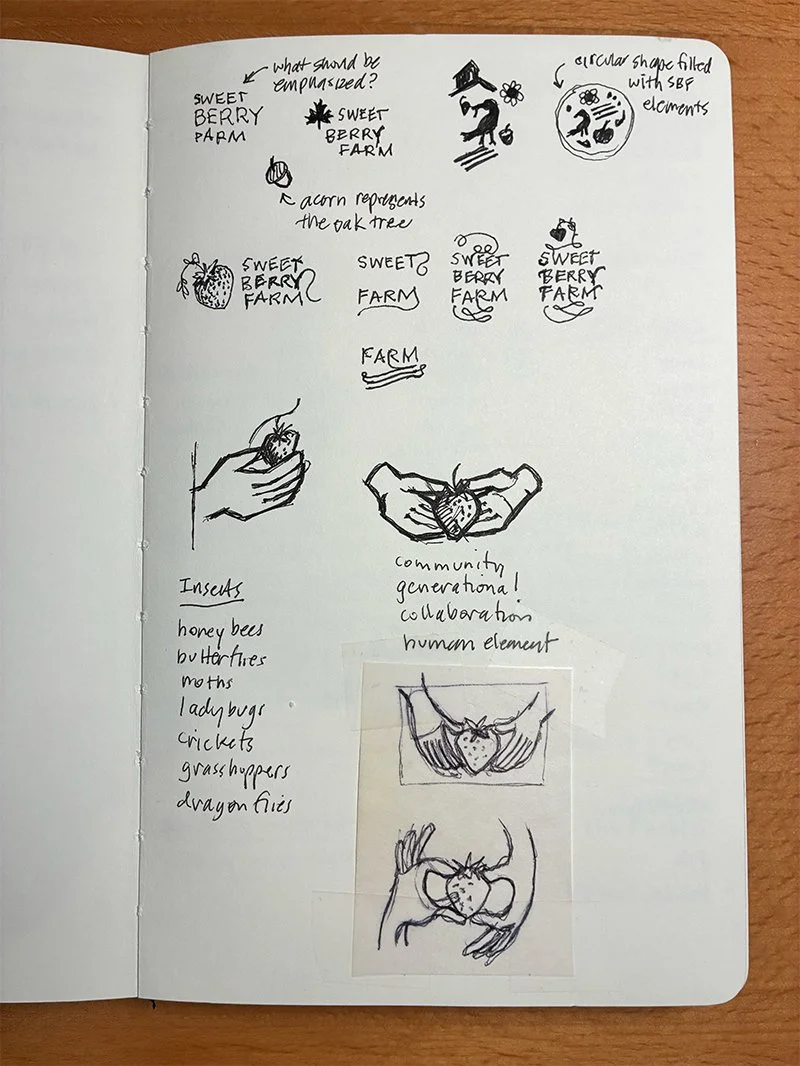 what should be
emphasized?
SWEET
BERRY
FARM
SWEET
BERRY
FARM
circular shape filled
with SBF
elements
acorn represents
the oak tree
SWEET
BERRY
FARM
SWEET
FARM
SWEET
BERRY
FARM
SWEET
BERRY
FARM
FARM
community
generational
collaboration
human element
Insects
honey bees
butterflies
moths
ladybugs
crickets
grasshoppers
dragonflies